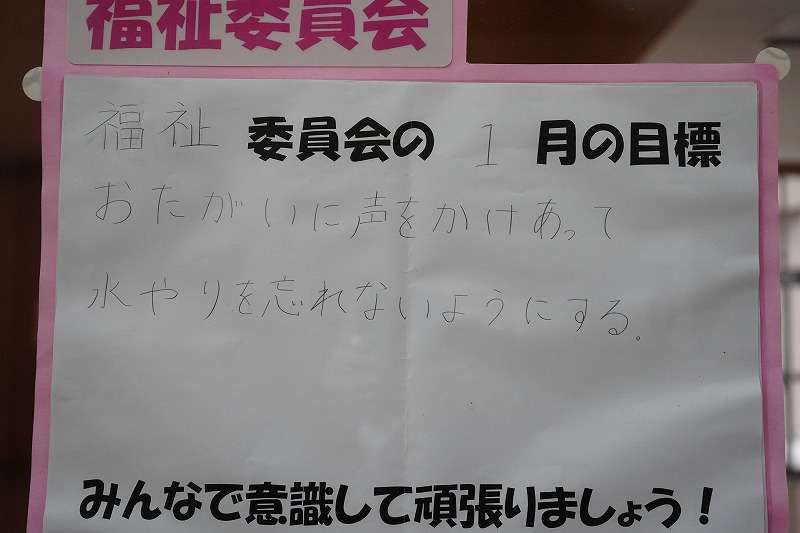 福祉委員会
福祉 委員会の 1 月の目標
おたがいに声をかけあって
水やりを忘れないようにする。
みんなで意識して頑張りましょう！